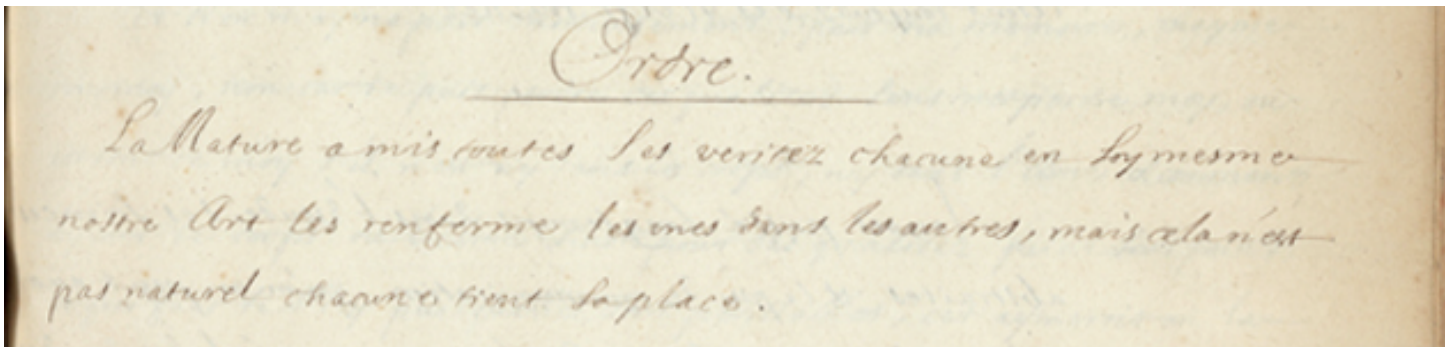 Ordre.
La Nature a mis toutes ses veritez chacune en soymesme
nostre Art les renferme les unes dans les autres, mais cela n'est
pas naturel chacune tient sa place.